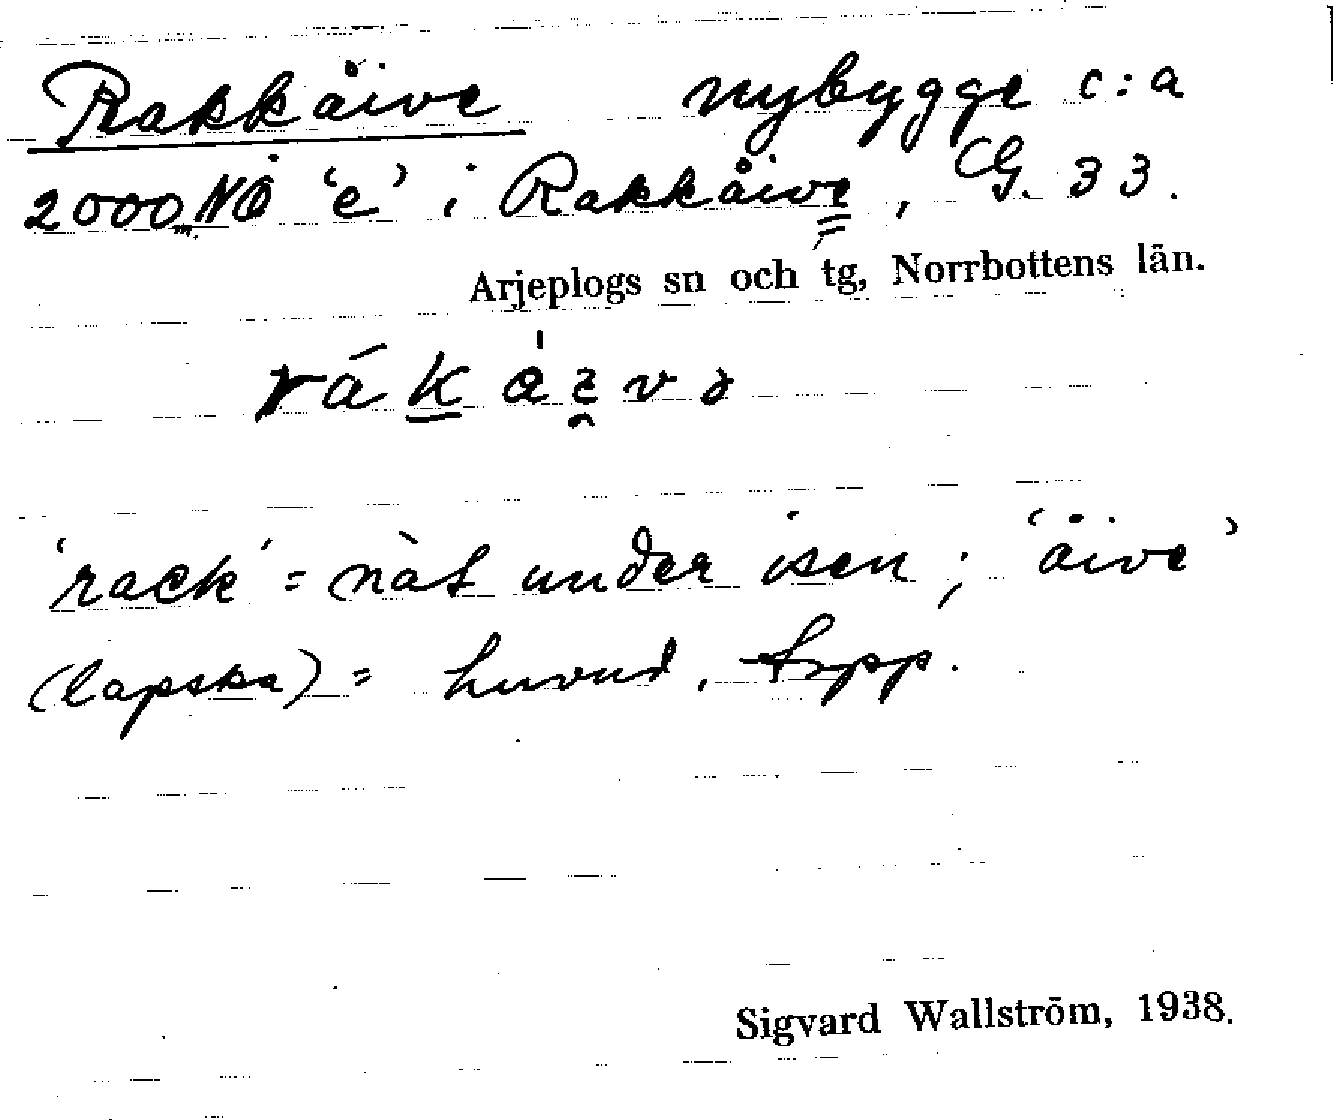 Rakkåive nybygge c:a
2000 m. NÖ 'e' i Rakkåive, G. 33.
Arjeplogs sn och tg, Norrbottens län.
'rack' = nät under isen; 'åive'
(lapska) = huvud, topp.
Sigvard Wallström, 1938.